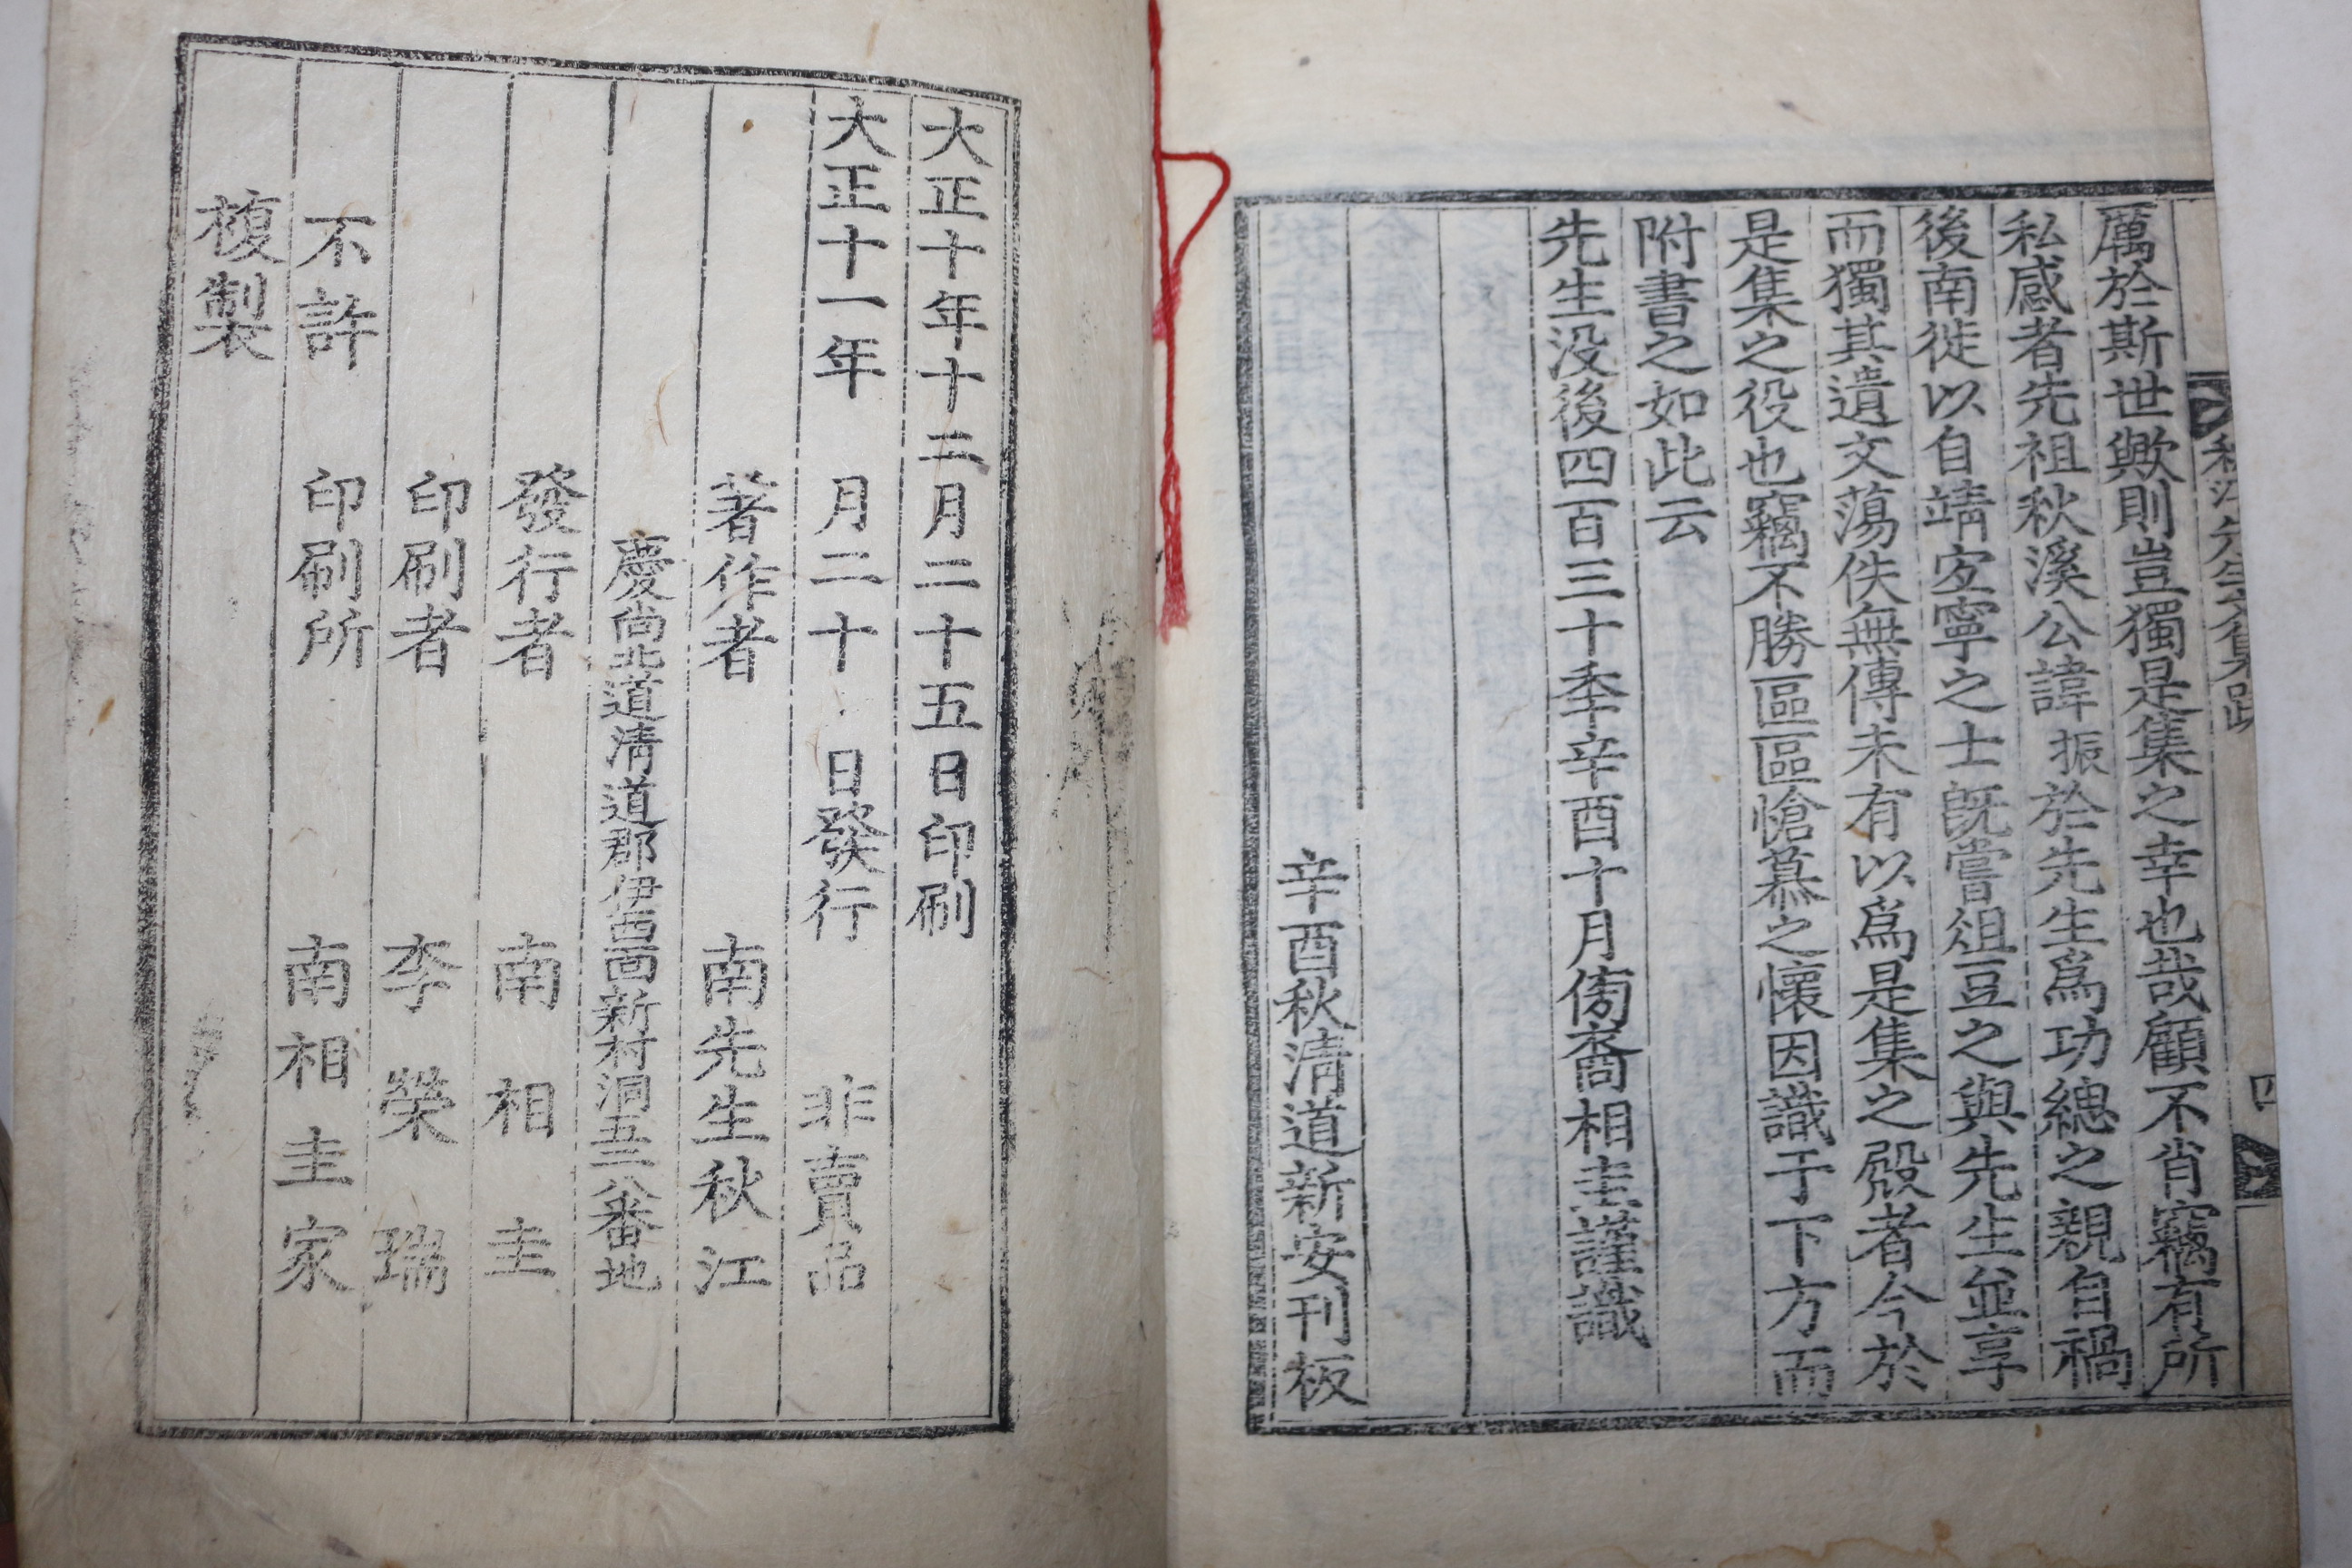 秋江先生文集跋
四
厲於斯世歟則豈獨是集之幸也哉顧不肖竊有所
私感者先祖秋溪公諱振於先生爲功緦之親自禍
後南徙以自靖寔寧之士旣嘗俎豆之與先生並享
而獨其遺文蕩佚無傳未有以爲是集之殿者今於
是集之役也竊不勝區區愴慕之懷因識于下方而
附書之如此云
先生没後四百三十季辛酉十月傍裔相圭謹識
辛酉秋清道新安刊板
大正十年十二月二十五日印刷
大正十一年 月二十 日發行 非賣品
著作者 南先生秋江
慶尙北道淸道郡伊西面新村洞五三八番地
發行者 南相圭
印刷者 李榮瑞
不許 印刷所 南相圭家
複製